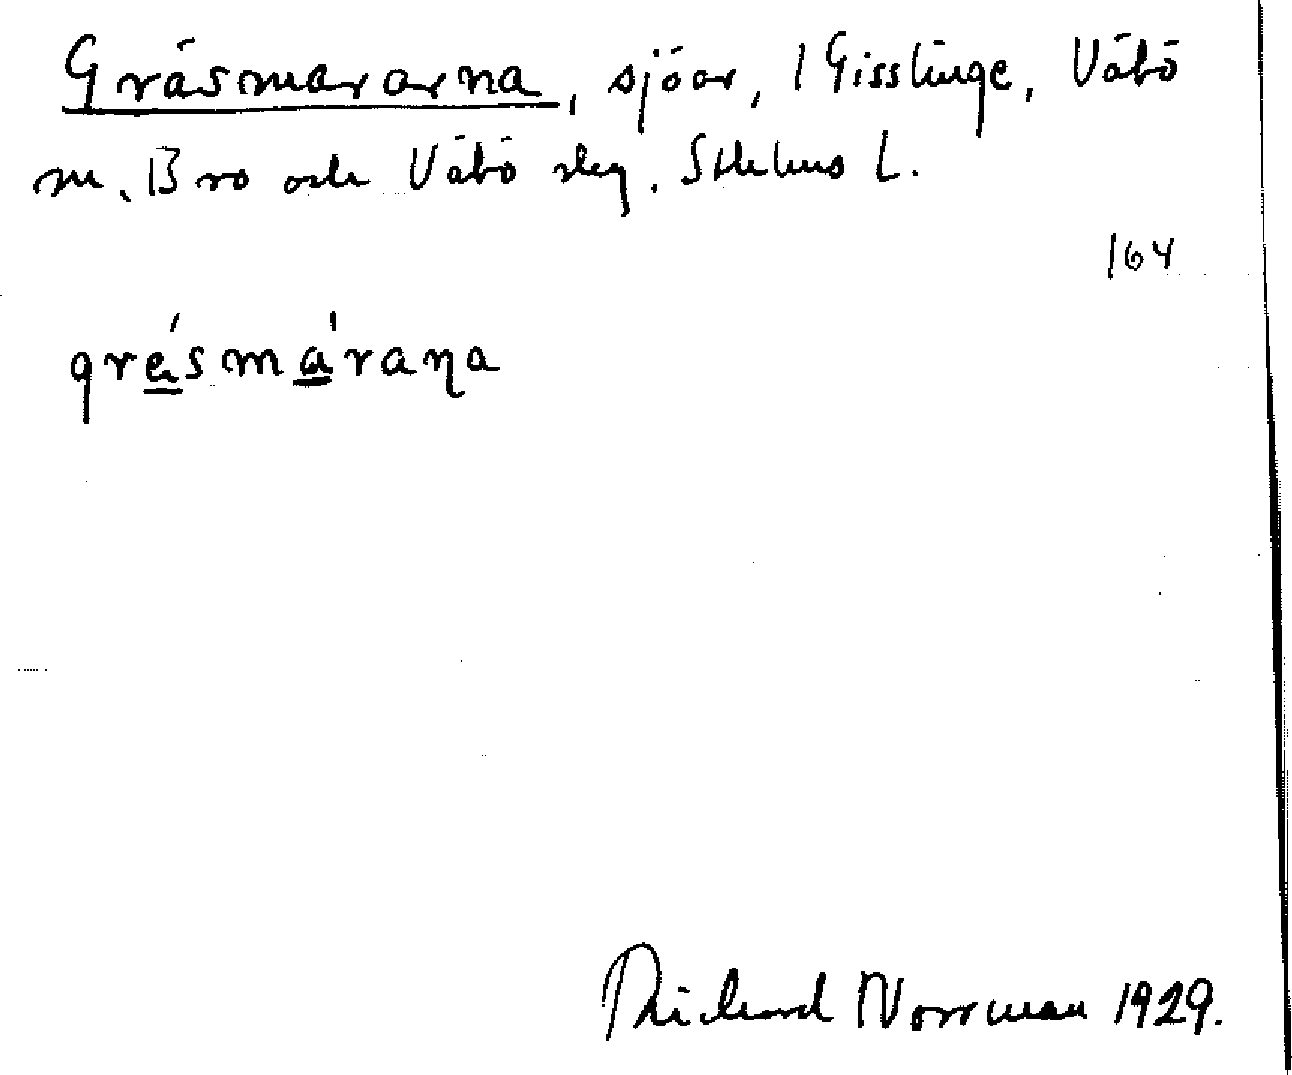 Gräsmararna, sjöar, 1 Gisslinge, Vätö
sn. Bro och Vätö slg. Sthlms l.
164
gräsmárana
Rickard Norrman 1929.